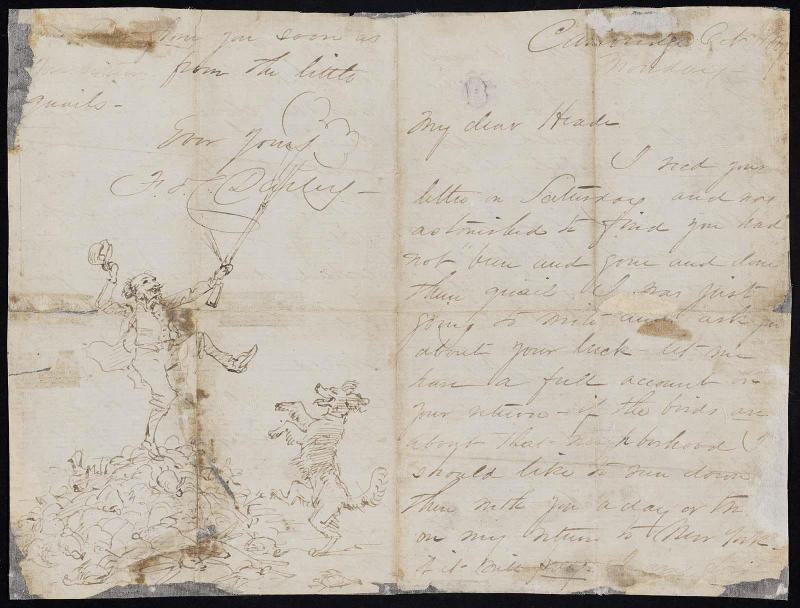 Cambridge Oct
Monday
My dear Heade
I recd your
letter on Saturday and was
astonished to find you had
not "been and gone and done
them quail. I was just
going to write and ask you
about your luck - let me
have a full account on
your return - if the birds are
about that neighborhood I
should like to run down
there with you a day or two
on my return to New York.
if it will
you soon as
from the little
quails -
Ever Yours
F. O. C. Darley -